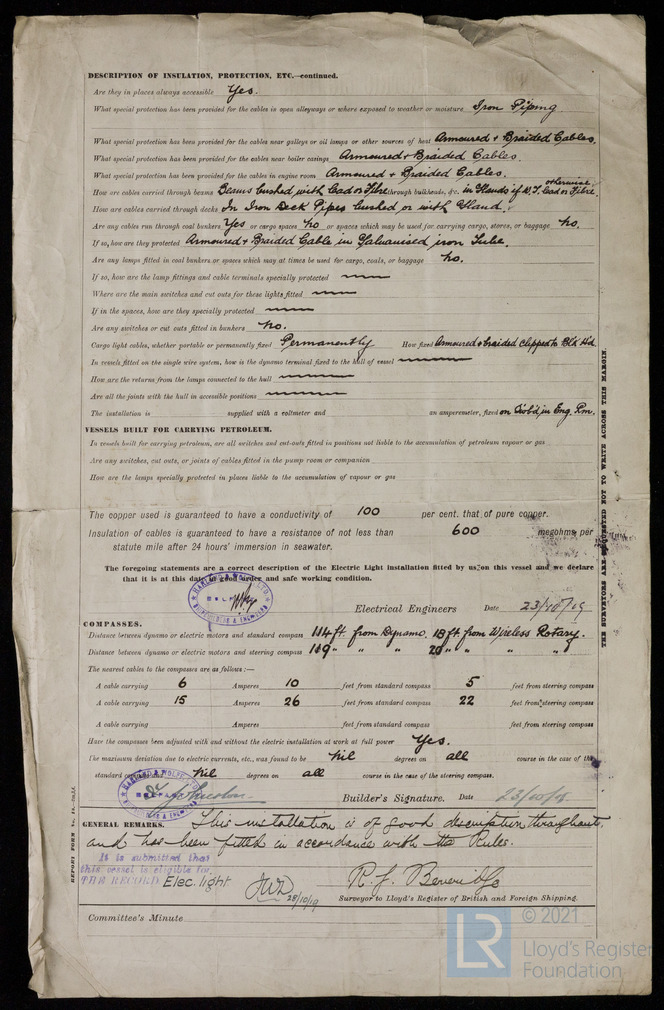 DESCRIPTION OF INSULATION, PROTECTION, ETC.—continued.
Are they in places always accessible Yes.
What special protection has been provided for the cables in open alleyways or where exposed to weather or moisture Iron Piping
What special protection has been provided for the cables near galleys or oil lamps or other sources of heat Armoured + Braided Cables.
What special protection has been provided for the cables near boiler casings Armoured + Braided Cables.
What special protection has been provided for the cables in engine room Armoured + Braided Cables.
How are cables carried through beams Beams bushed with Lead or Fibre through bulkheads, &c. in Glands if W.T. otherwise Lead or Fibre.
How are cables carried through decks In Iron Deck Pipes bushed or with Gland.
Are any cables run through coal bunkers Yes or cargo spaces No or spaces which may be used for carrying cargo, stores, or baggage No.
If so, how are they protected Armoured + Braided Cable in Galvanised iron Tube.
Are any lamps fitted in coal bunkers or spaces which may at times be used for cargo, coals, or baggage No.
If so, how are the lamp fittings and cable terminals specially protected
Where are the main switches and cut outs for these lights fitted
If in the spaces, how are they specially protected
Are any switches or cut outs fitted in bunkers No.
Cargo light cables, whether portable or permanently fixed Permanently How fixed Armoured & braided clipped to Blk Hd
In vessels fitted on the single wire system, how is the dynamo terminal fixed to the hull of vessel
How are the returns from the lamps connected to the hull
Are all the joints with the hull in accessible positions
The installation is supplied with a voltmeter and an amperemeter, fixed on in Eng. Rm.
VESSELS BUILT FOR CARRYING PETROLEUM.
In vessels built for carrying petroleum, are all switches and cut-outs fitted in positions not liable to the accumulation of petroleum vapour or gas
Are any switches, cut outs, or joints of cables fitted in the pump room or companion
How are the lamps specially protected in places liable to the accumulation of vapour or gas
The copper used is guaranteed to have a conductivity of 100 per cent. that of pure copper.
Insulation of cables is guaranteed to have a resistance of not less than 600 megohms per
statute mile after 24 hours' immersion in seawater.
The foregoing statements are a correct description of the Electric Light installation fitted by us on this vessel and we declare
that it is at this date in good order and safe working condition.
HARLAND & WOLFF LTD
SHIPBUILDERS & ENGINEERS
Electrical Engineers Date 23/10/19
COMPASSES.
Distance between dynamo or electric motors and standard compass 114 ft. from Dynamo. 18 ft from Wireless Rotary.
Distance between dynamo or electric motors and steering compass 119 " " " 20 " " " "
The nearest cables to the compasses are as follows:—
A cable carrying 6 Amperes 10 feet from standard compass 5 feet from steering compass
A cable carrying 15 Amperes 26 feet from standard compass 22 feet from steering compass
A cable carrying Amperes feet from standard compass feet from steering compass
Have the compasses been adjusted with and without the electric installation at work at full power Yes.
The maximum deviation due to electric currents, etc., was found to be Nil degrees on all course in the case of the
standard compass and Nil degrees on all course in the case of the steering compass.
HARLAND & WOLFF LTD
SHIPBUILDERS & ENGINEERS
Builder's Signature. Date 23/10/19
GENERAL REMARKS. This installation is of good description throughout,
and has been fitted in accordance with the Rules.
It is submitted that
this vessel is eligible for
THE RECORD Elec. light
28/10/19
R. J. Beveridge
Surveyor to Lloyd's Register of British and Foreign Shipping.
Committee's Minute
THE SURVEYORS ARE REQUESTED NOT TO WRITE ACROSS THIS MARGIN.
© 2021
LR
Lloyd's Register
Foundation